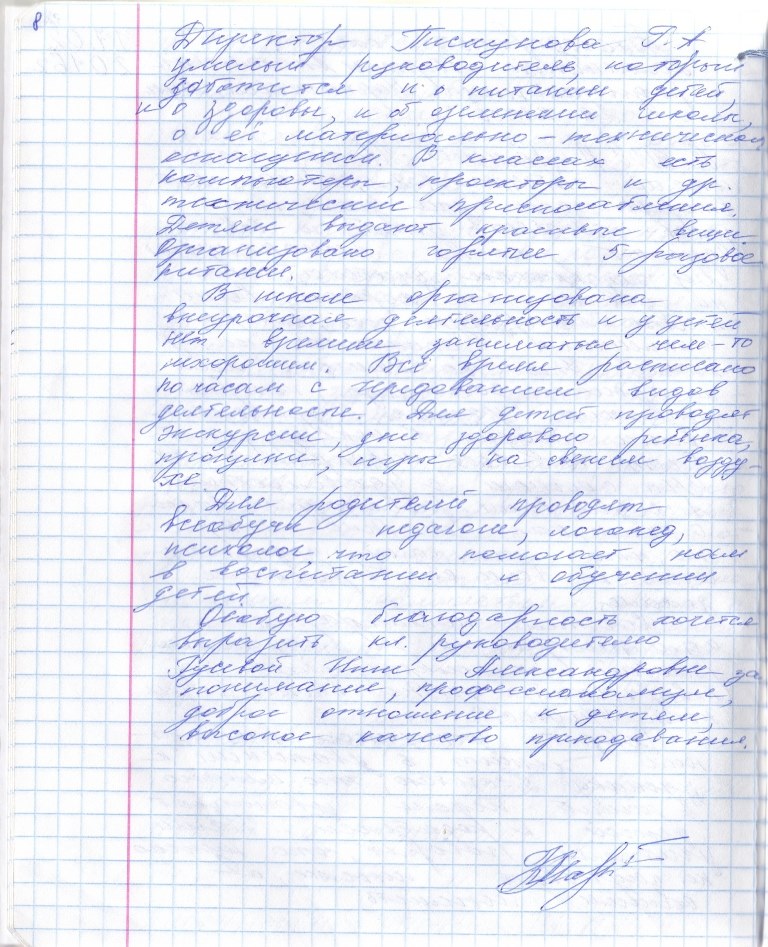 8
Директор Пискунова Г. А
умелый руководитель, который
заботится и о питании детей,
и о здоровьи, и об озеленении школы,
о её материально-техническом
оснащении. В классах есть
компьютеры, проекторы и др.
технический приспособления.
Детям выдают красивые вещи.
Организовано горячее 5-разовое
питание.
В школе организована
внеурочная деятельность и у детей
нет времени заниматься чем-то
нехорошим. Всё время расписано
по часам с чередованием видов
деятельности. Для детей проводят
экскурсии, дни здорового ребёнка,
прогулки, игры на свежем возду-
хе.
Для родителей проводят
всеобучи педагоги, логопед,
психолог, что помогает нам
в воспитании и обучении
детей.
Особую благодарность хочется
выразить кл. руководителю
Гусевой Инне Александровне за
понимание, профессионализм,
доброе отношение к детям,
высокое качество преподавания.